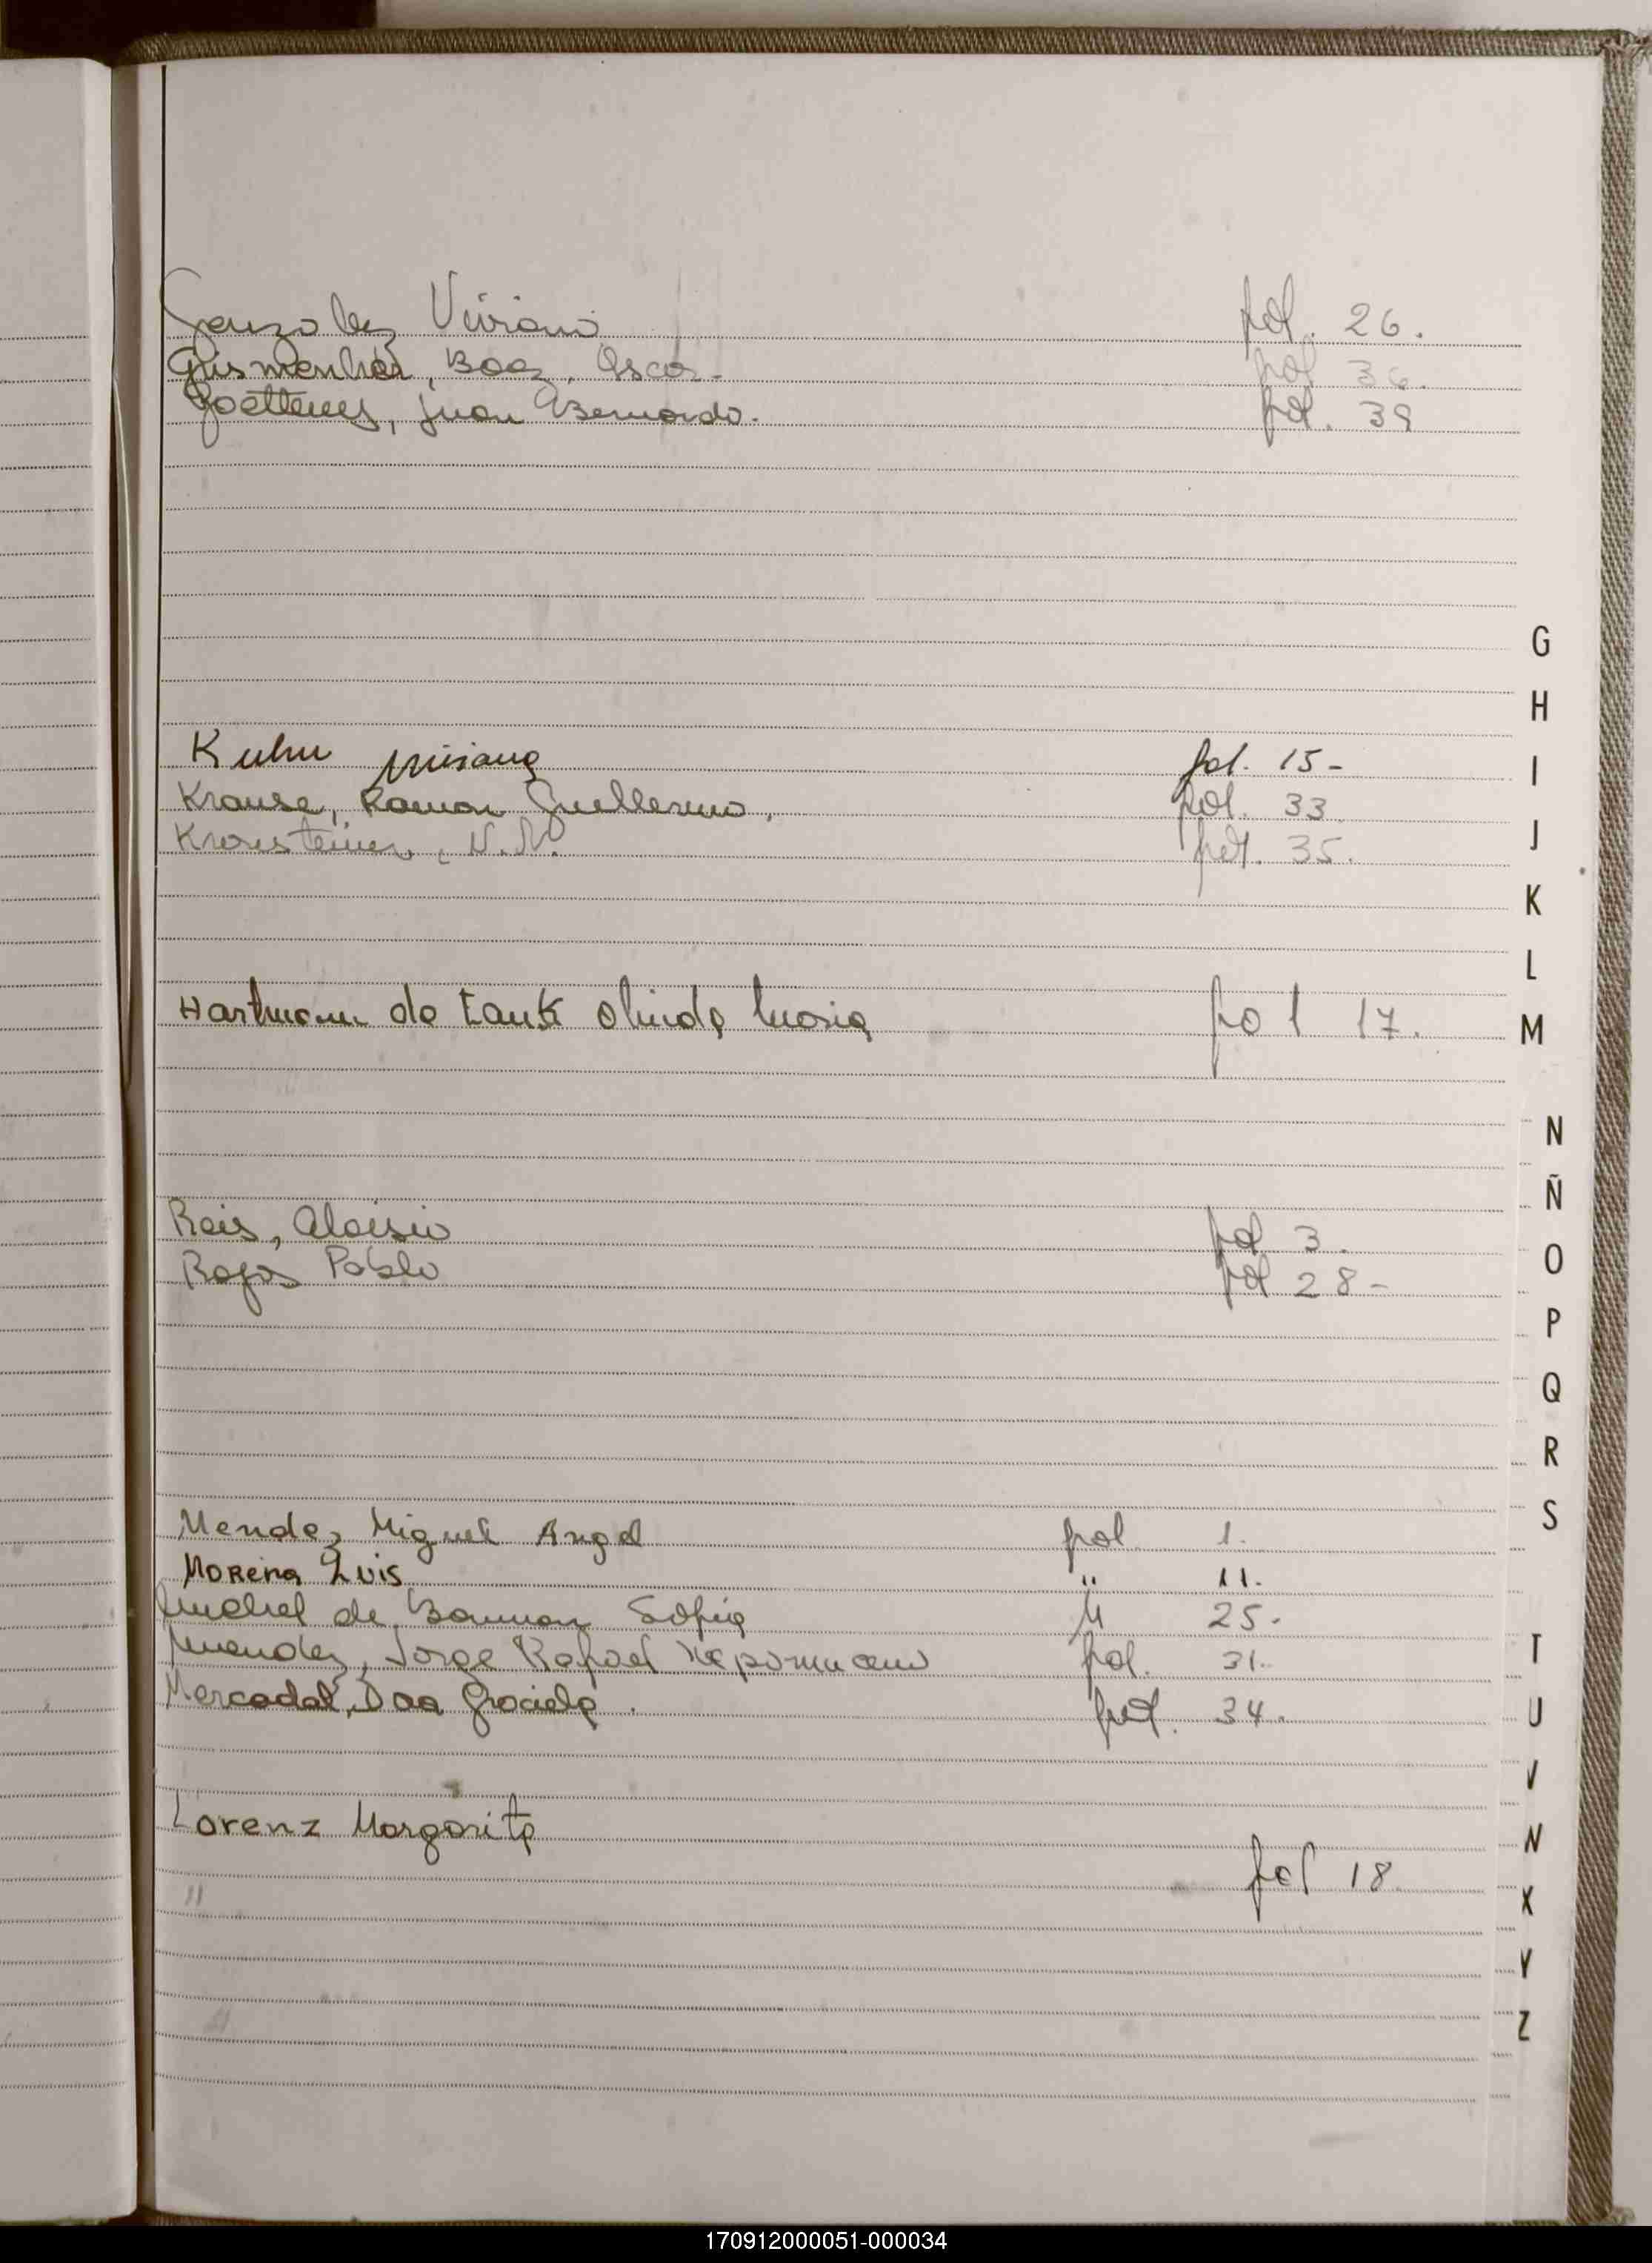 Gonzalez Viviana fol. 26.
Boez, Oscar. fol 36.
Juan Bernardo. fol. 39
G
H
Kuhn fol. 15-
I
Krause, Ramon Guillermo, fol. 33
J
N.N. fol. 35.
K
L
Hartmann de Tausk Olinda Maria fol 17.
M
N
Ñ
Reis, Aloisio fol 3.
O
Rojas Pablo fol 28-
P
Q
R
S
Mendez Miguel Angel fol 1.
Moreira Luis " 11.
Michel de Bauman Sofia " 25.
T
Mendez, Jorge Rafael Nepomuceno fol. 31.
Mercadal, Graciela. fol. 34.
U
V
Lorenz Margarita
fol 18
X
Y
Z
170912000051-000034